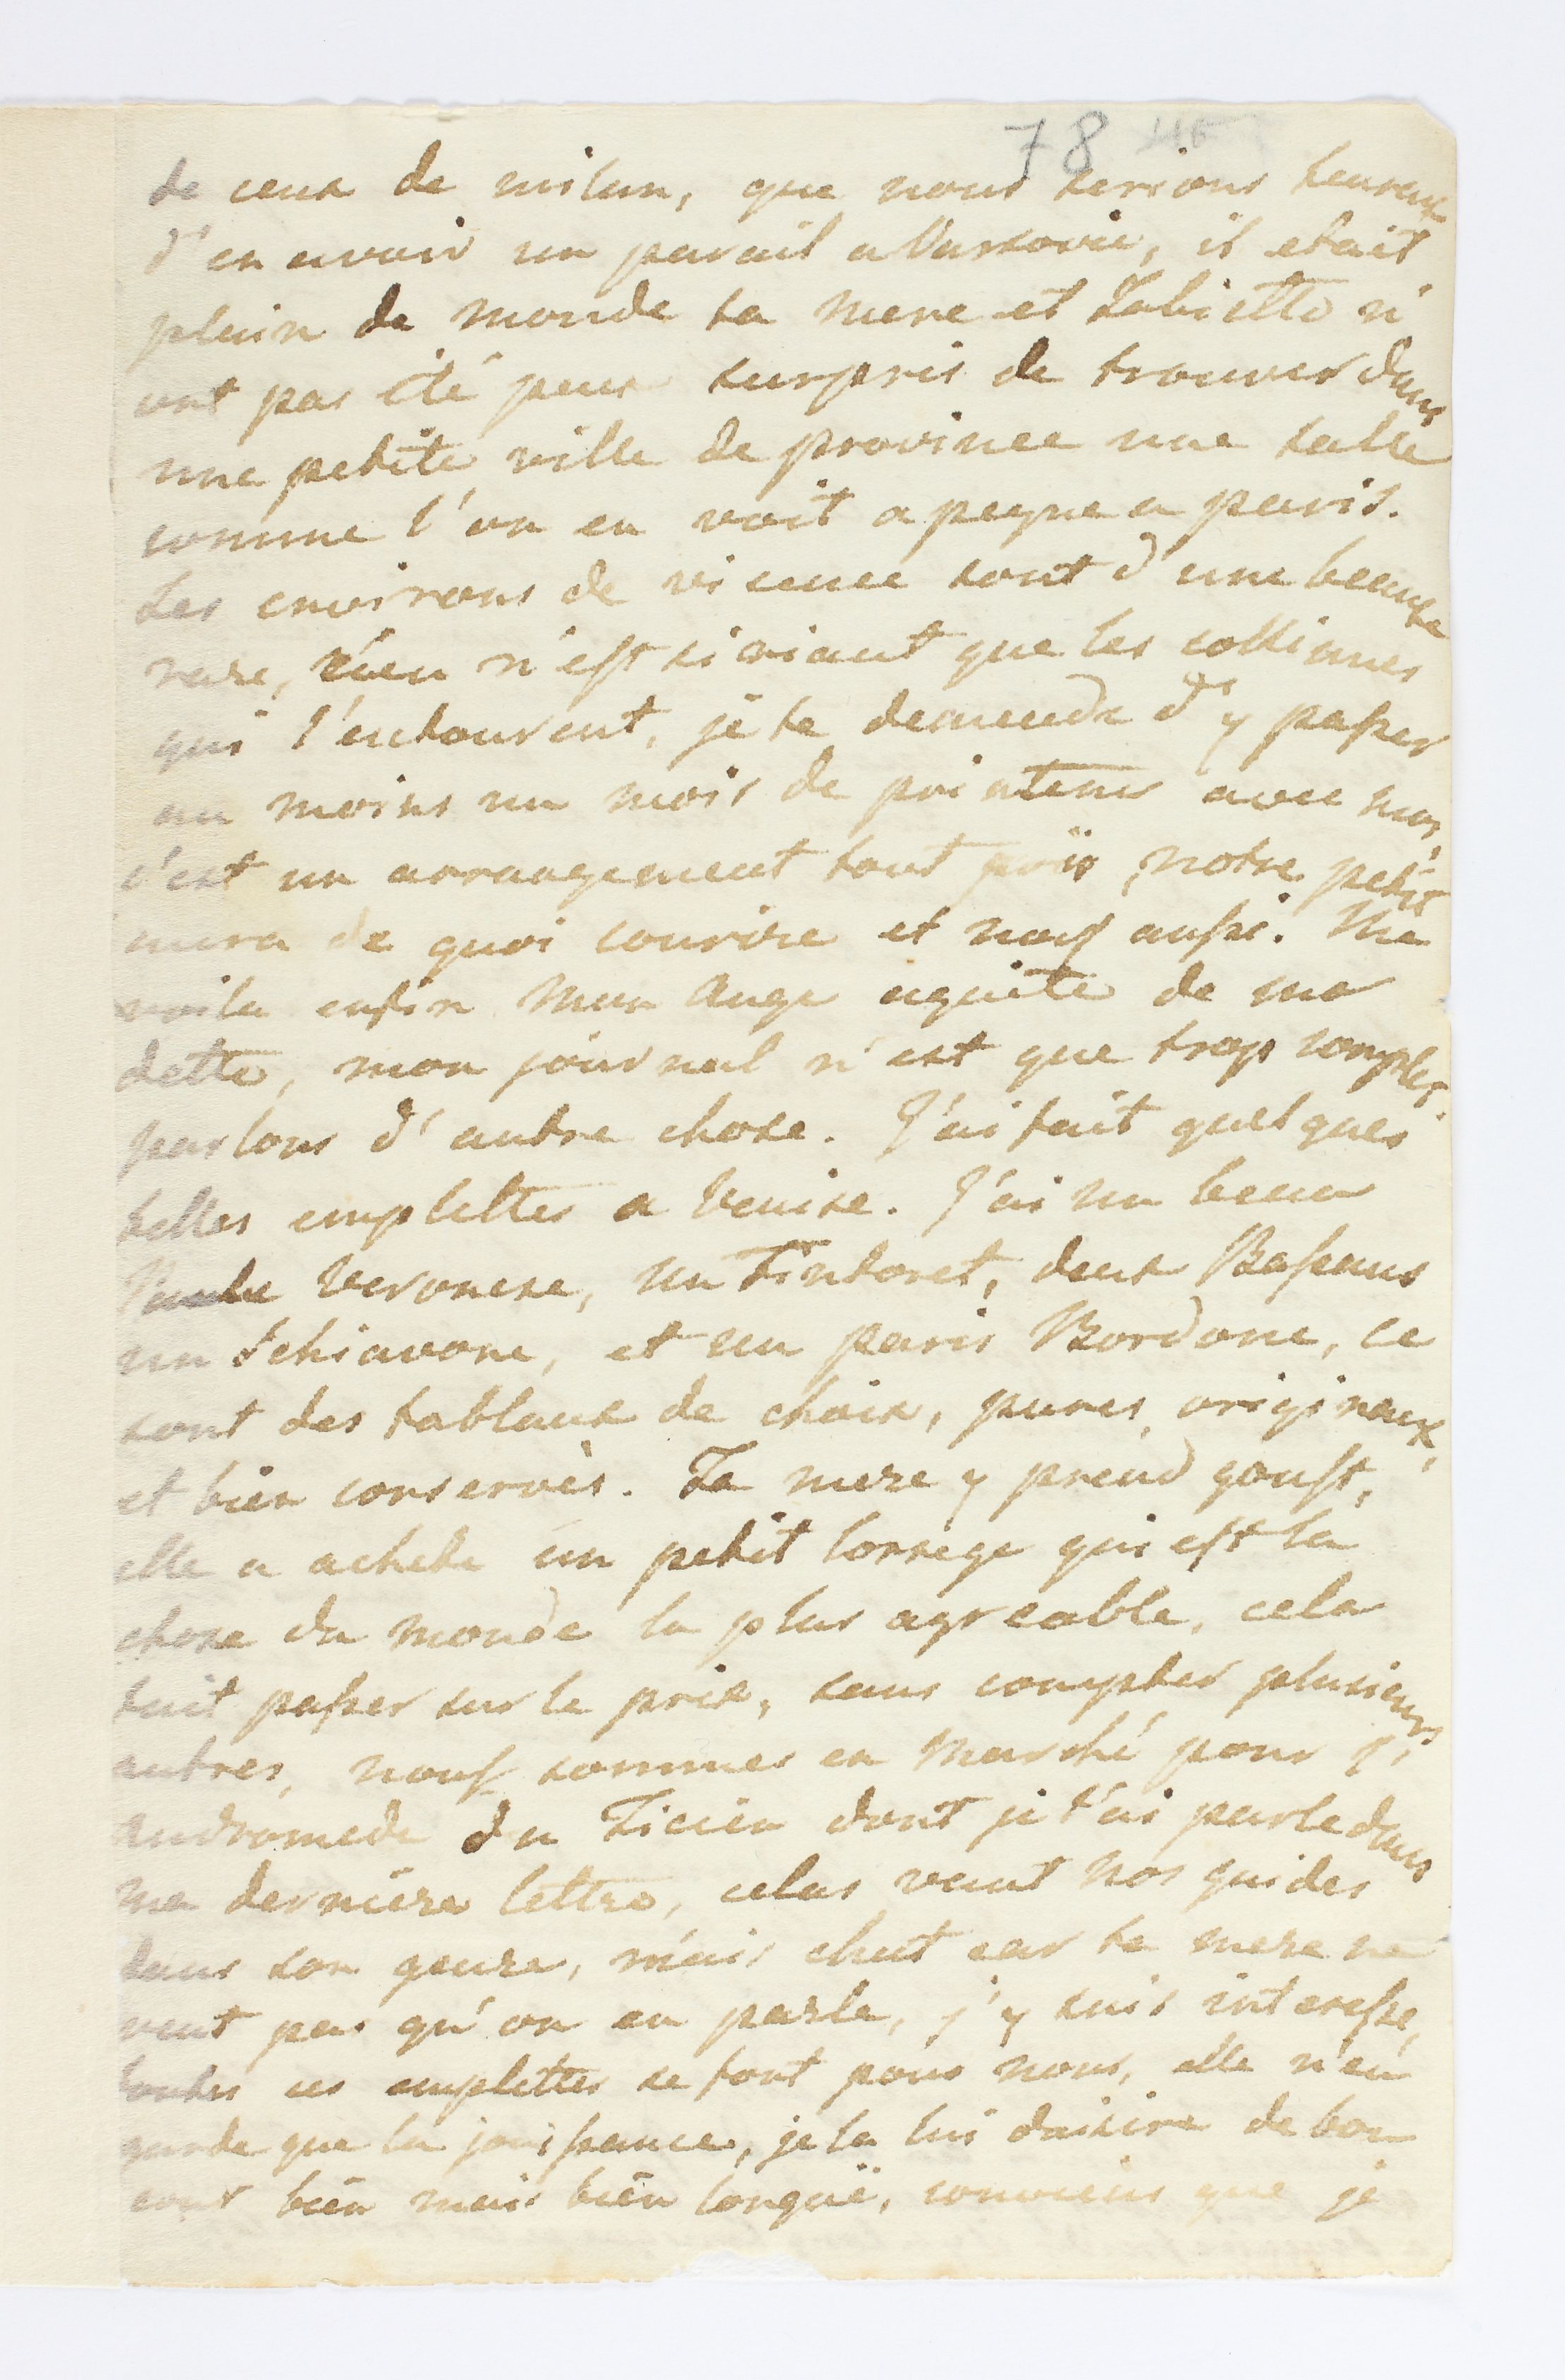 78
de ceux de milan, que nous serions heureux
d'en avoir un pareil a Varsovie, il etait
plein de monde ta mere et Tobiette n'
ont pas été peux surpris de trouver dans
une petite ville de province une salle
comme l'on en voit a peyne a paris.
Les environs de vicence sont d'une beaute
rare, rien n'est si riant que les collinnes
qui l'entourent, je te demande d'y passer
au moins un mois de printems avec nous,
c'est un arrangement tout pris, notre petit
aura de quoi courire et nous aussi. Me
voila enfin mon Ange aquité de ma
dette, mon journal n'est que trop complet.
parlons d'autre chose. J'ai fait quelques
belles emplettes a Venise. J'ai un beau
Paule Veronese, un Tintoret, deux Bassans
un Schiavone, et un paris Bordone, ce
sont des tablaux de choix, pures, originaux,
et bien conservès. Ta mere y prend goust,
elle a acheté un petit Correge qui est la
chose du monde la plus agreable, cela
fait passer sur le prix, sans compter plusieurs
autres, nous sommes en Marché pour l'
Andromede du Ticien dont je t'ai parle dans
ma derniere lettre, celas vaut nos guides
dans son genre, mais chut car ta mere ne
veut pas qu'on en parle, j'y suis interessé,
toutes ces emplettes se font pour nous, elle n'en
garde que la jouissance, je la lui daisire de bon
cour bien mais bien longue, conviens que je